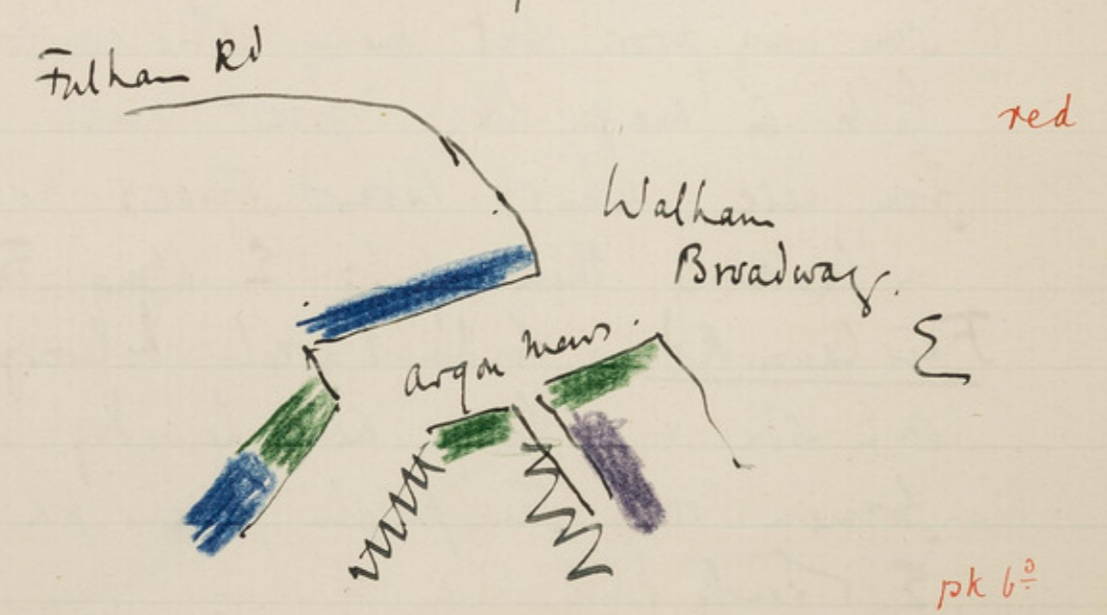 Fulham Rd
red
Walham
Broadway.
argon mews.
E
pk 6